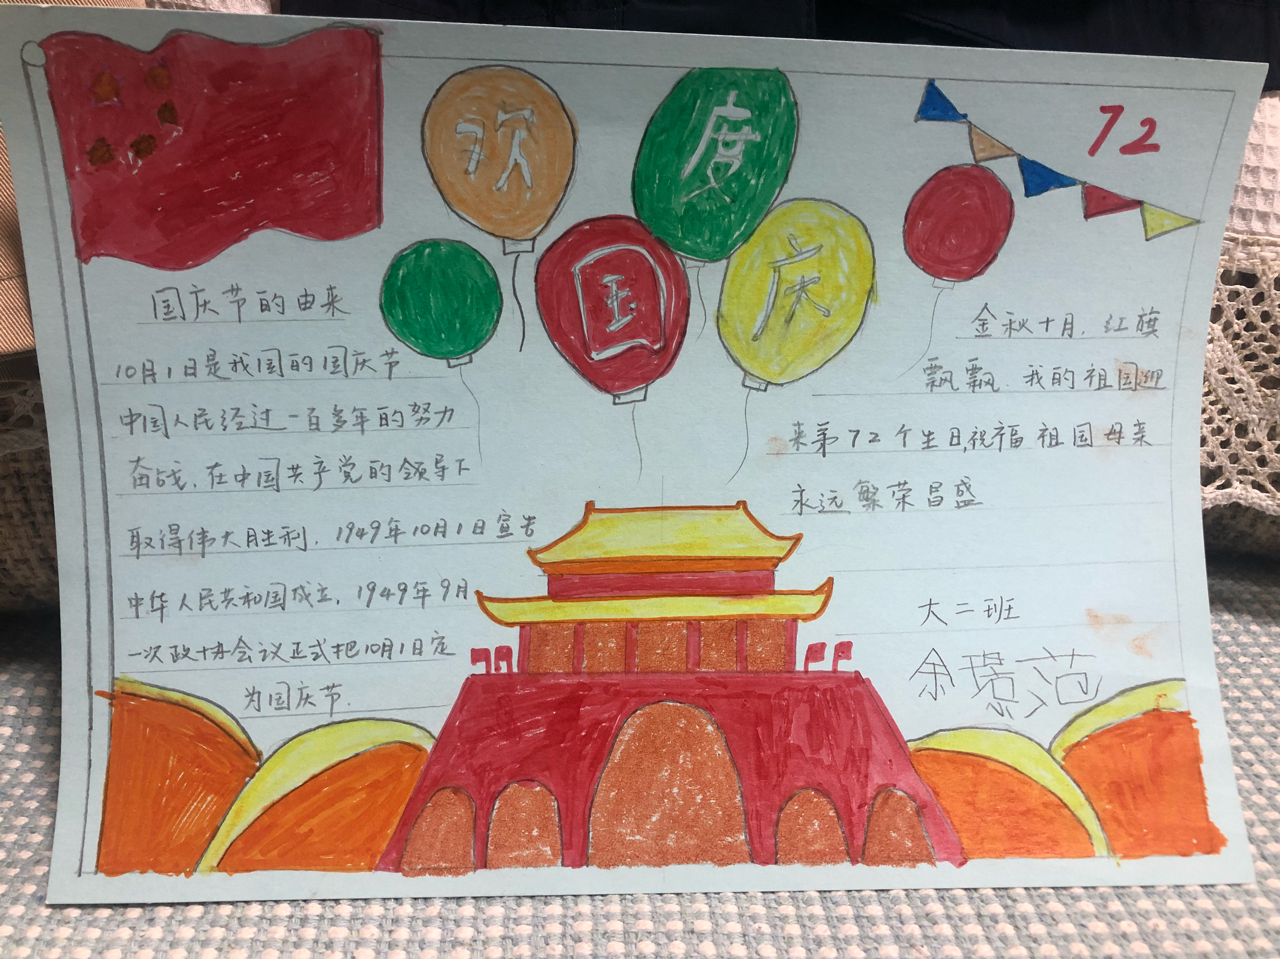 欢度
国庆
72
国庆节的由来
10月1日是我国的国庆节
中国人民经过一百多年的努力
奋战,在中国共产党的领导下
取得伟大胜利,1949年10月1日宣告
中华人民共和国成立,1949年9月
一次政协会议正式把10月1日定
为国庆节.
金秋十月,红旗
飘飘.我的祖国迎
来第72个生日,祝福祖国母亲
永远繁荣昌盛
大二班